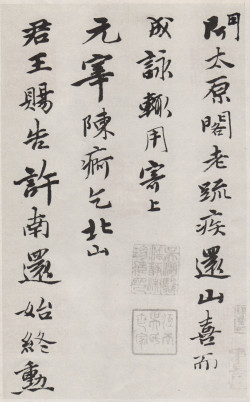 闻太原閤老疏疾還山喜而
成詠輙用寄上
元宰陳痾乞北山
君王賜告許南還始終勳